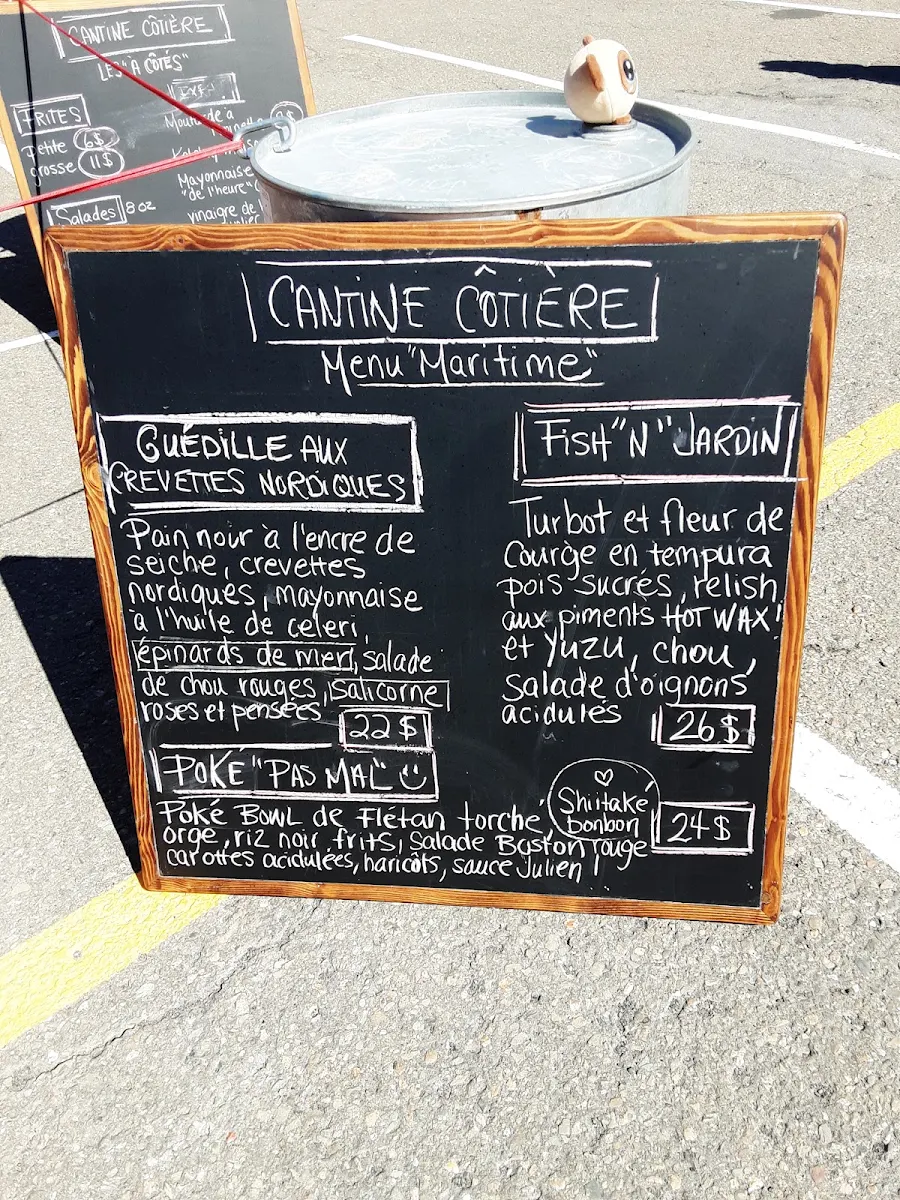 CANTINE CÔTIÈRE
LES "À CÔTÉS"
FRITES
Petite 6$
grosse 11$
Salades 8 oz
Mayonnaise
"de l'heure"
vinaigre de
CANTINE CÔTIÈRE
Menu "Maritime"
GUÉDILLE AUX
CREVETTES NORDIQUES
Pain noir à l'encre de
seiche, crevettes
nordiques, mayonnaise
à l'huile de celeri,
épinards de mer, salade
de chou rouges, salicorne
roses et pensées 22$
FISH "N" JARDIN
Turbot et fleur de
courge en tempura
pois sucrés, relish
aux piments HOT WAX!
et YUZU, chou,
salade d'oignons
acidulés 26$
POKÉ "PAS MAL"
Poké BOWL de Flétan torché,
orge, riz noir frits, salade Boston rouge
carottes acidulées, haricôts, sauce Julien!
Shiitaké
bonbon
24$